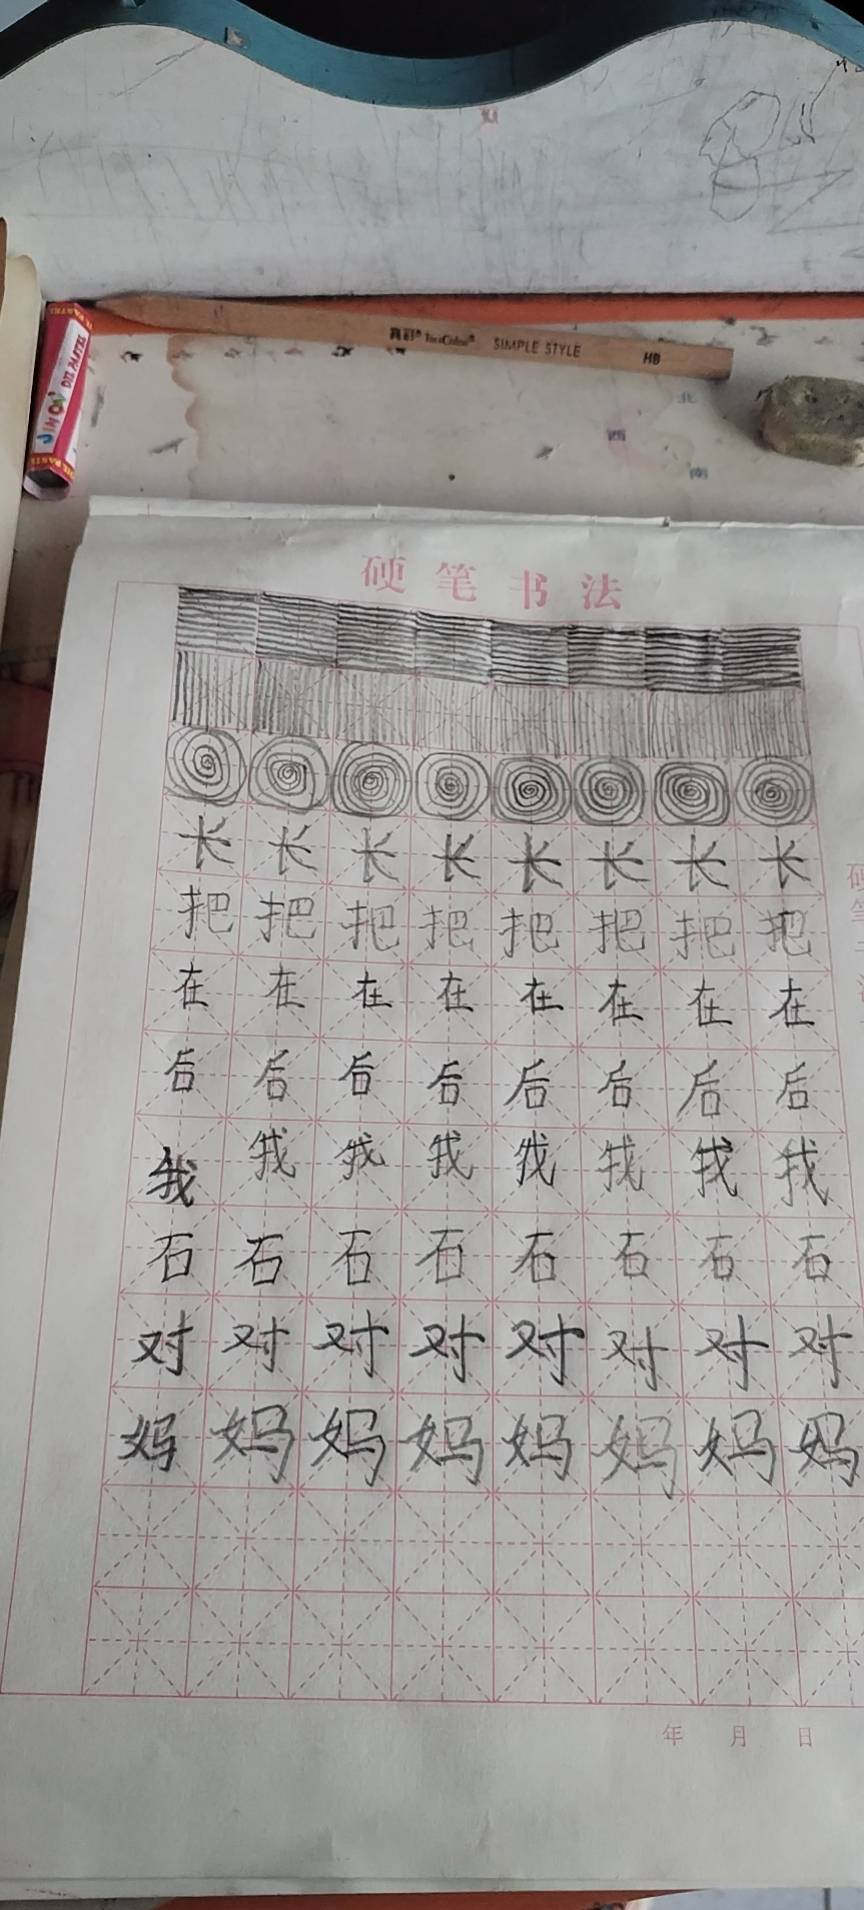 真彩® TrueColor® SIMPLE STYLE HB
OIL PASTEL
SIMON OIL PASTEL
北
西
南
硬笔书法
长长长长长长长长
把把把把把把把把
在在在在在在在在
后后后后后后后后
我我我我我我我我
石石石石石石石石
对对对对对对对对
妈妈妈妈妈妈妈妈
年 月 日